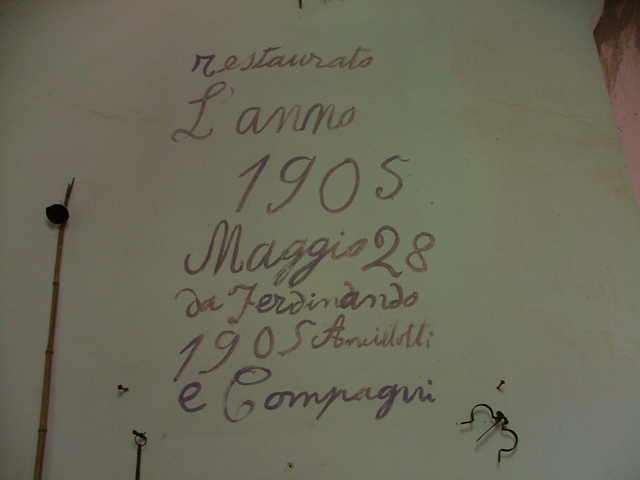 restaurato
L'anno
1905
Maggio 28
da Ferdinando
1905 Ancillotti
e Compagni